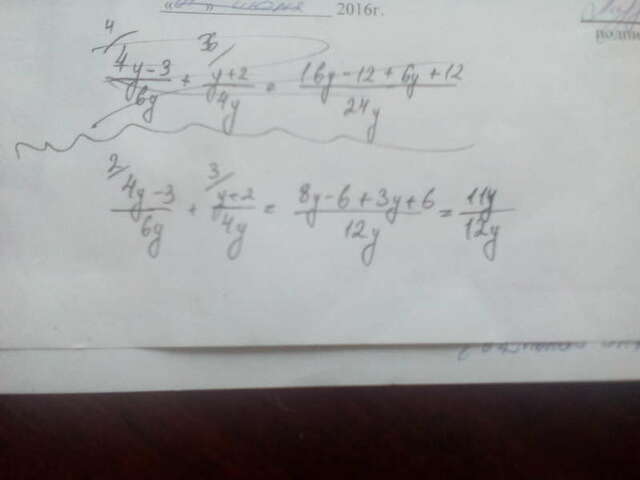 2016г.
4/ 6/
4y-3/6y + y+2/4y = 16y-12+6y+12/24y
2/ 3/
4y-3/6y + y+2/4y = 8y-6+3y+6/12y = 11y/12y